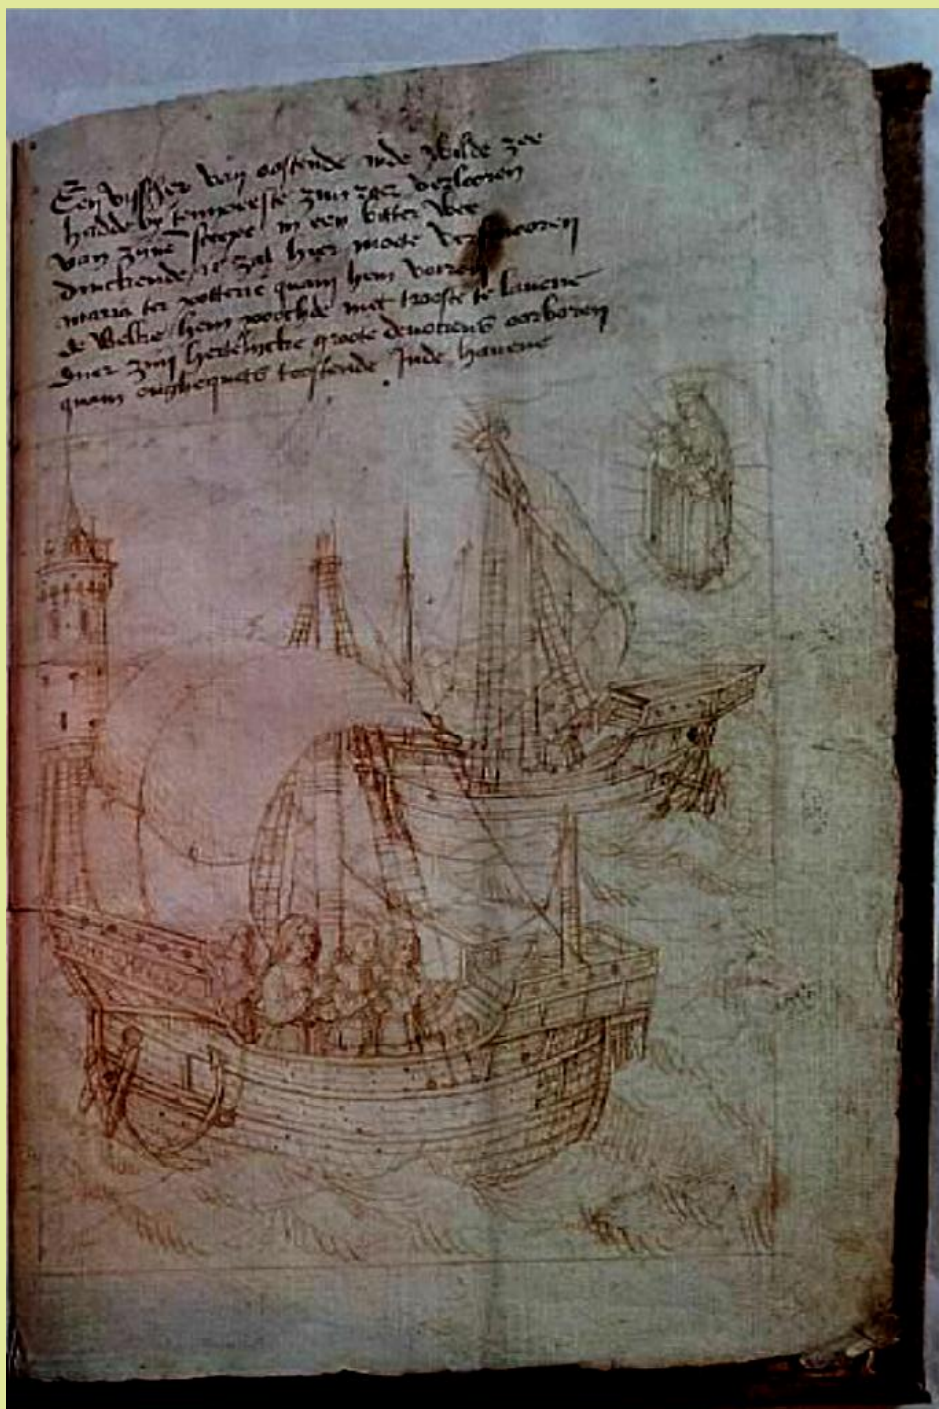 Een vissher van oostende inde wilde zee
hadde by tempeeste zijn zeer verlooren
van zijne scepe in een bitter wee
dinckende ic zal hier moete
maria ter potterie quam hem voren
de welke hem met trooste te lavene
duer zijn hertelijcke groote devotiens oorboren
quam toostende inde havene